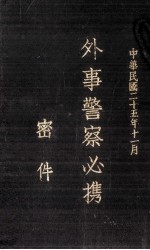 中華民國二十五年十一月
外事警察必携
密件